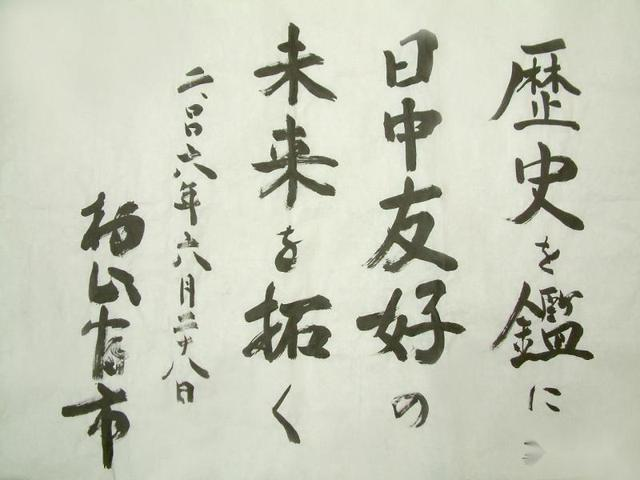 歴史を鑑に
日中友好の
未来を拓く
二〇〇六年六月二十八日
村山富市